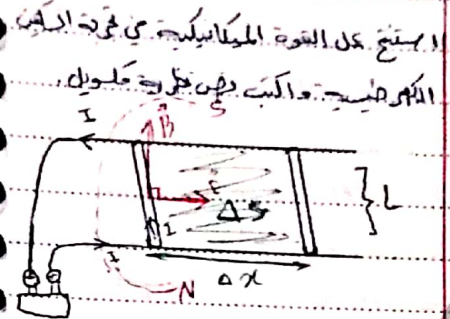 استنتج عمل القوة الميكانيكية في تجربة السكتين
الكهرطيسية واكتب نص نظرية مكسويل.
I
B
S
F
ΔS
I
L
I
Δx
N